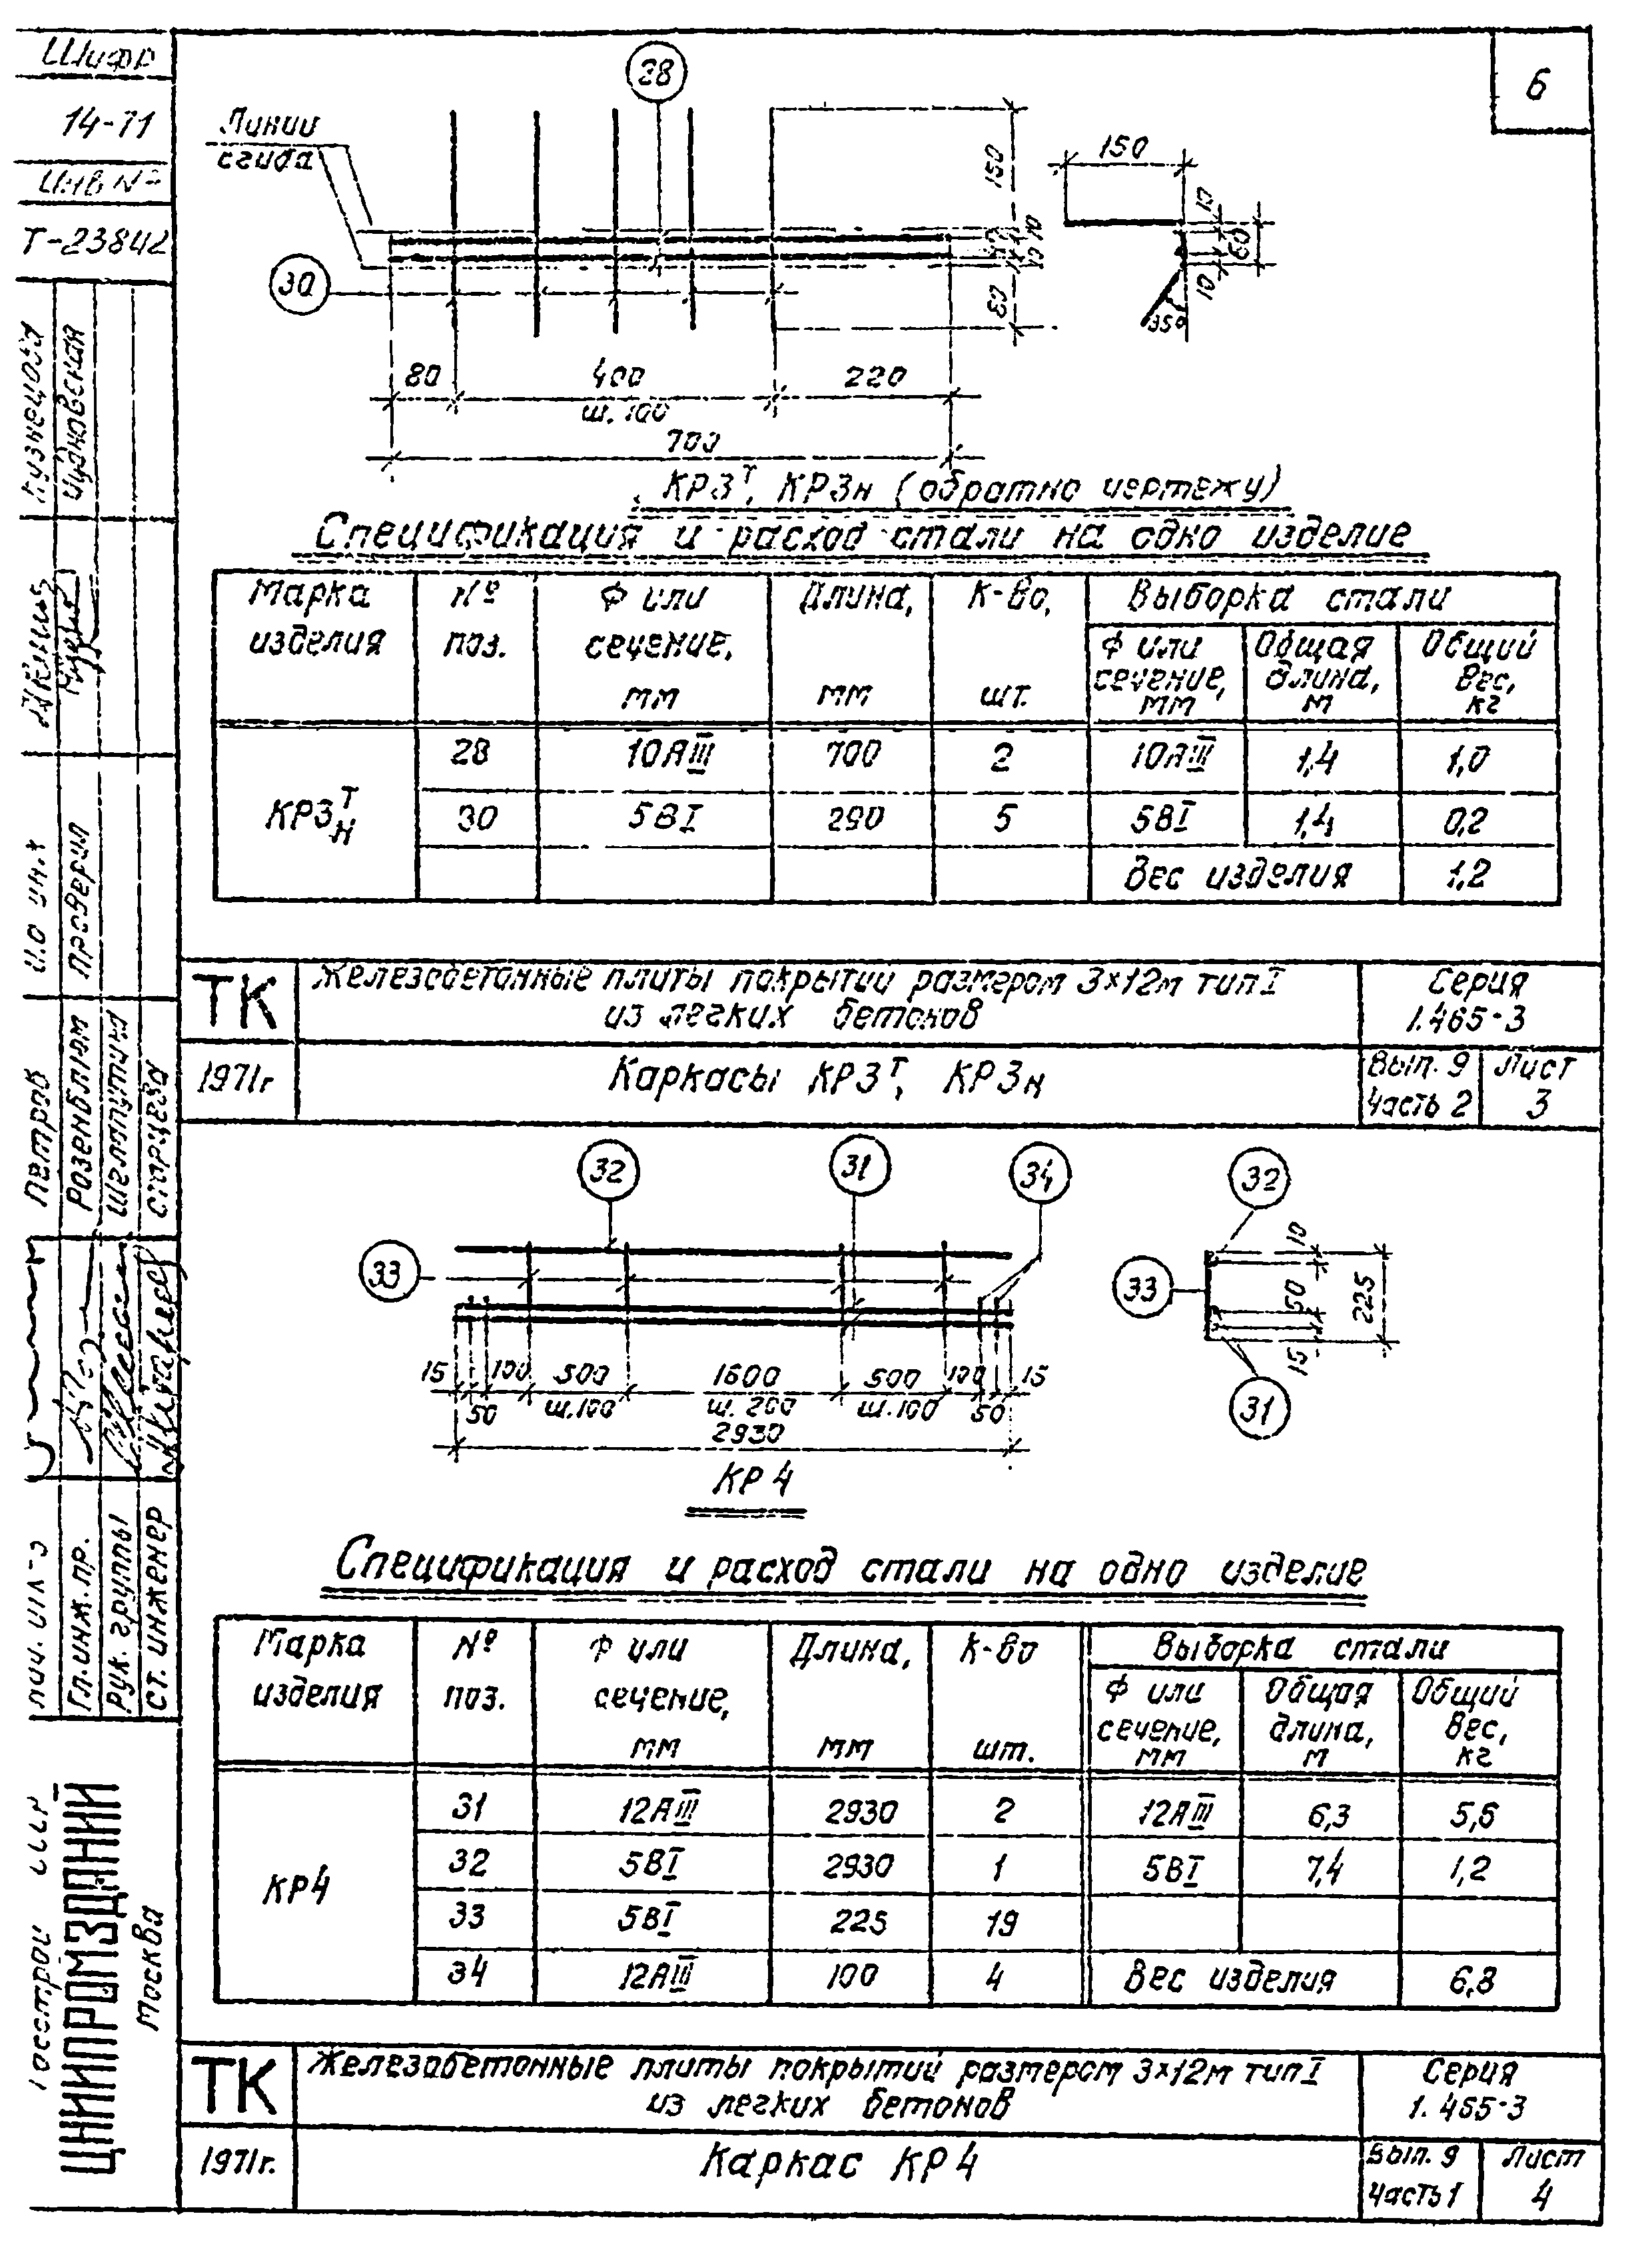 Шифр
14-71
Инв №
Т-23842
6
28
Линии
сгиба
30
150
10
10
80
150
10
60
10
35°
80
400
220
ш. 100
700
КР3т, КР3н (обратно чертежу)
Спецификация и расход стали на одно изделие
Марка изделия
№ поз.
Ф или сечение, мм
Длина, мм
К-во, шт.
Выборка стали
Ф или сечение, мм
Общая длина, м
Общий вес, кг
КР3 т н
28 10АIII 700 2 10АIII 1,4 1,0
30 5ВI 290 5 5ВI 1,4 0,2
Вес изделия 1,2
ТК
Железобетонные плиты покрытий размером 3×12м тип I
из легких бетонов
Серия
1.465-3
1971г
Каркасы КР3т, КР3н
Вып. 9
Часть 2
Лист
3
32
31
34
33
15 100 500 1600 500 100 15
50 ш.100 ш. 200 ш.100 50
2930
КР4
32
33
31
10
50
15
225
Спецификация и расход стали на одно изделие
Марка изделия
№ поз.
Ф или сечение, мм
Длина, мм
к-во шт.
Выборка стали
Ф или сечение, мм
Общая длина, м
Общий вес, кг
КР4
31 12АIII 2930 2 12АIII 6,3 5,6
32 5ВI 2930 1 5ВI 7,4 1,2
33 5ВI 225 19
34 12АIII 100 4 Вес изделия 6,8
ТК
Железобетонные плиты покрытий размером 3×12м тип I
из легких бетонов
Серия
1.465-3
1971г.
Каркас КР4
Вып. 9
Часть 1
Лист
4
Кузнецова
Проверил
Петров
Розенблюм
Старцева
Гл. инж. пр.
Рук. группы
Ст. инженер
ЦНИИПРОМЗДАНИЙ
Москва